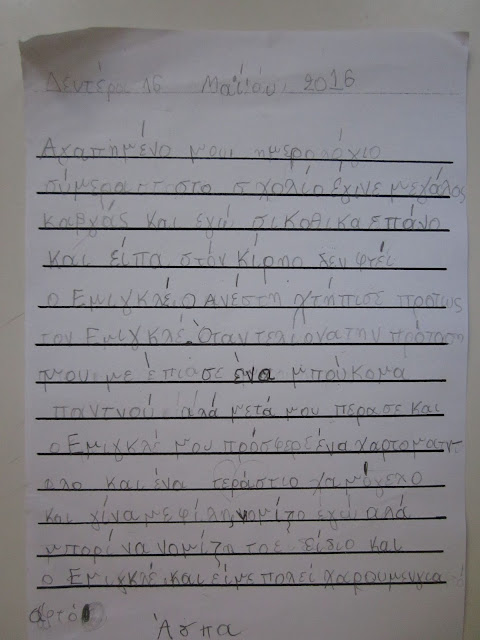 Δευτέρα 16 Μαΐου, 2016
Αχαπημένο μου ημερολόγιο
σύμερα στο σχολίο έγινε μεχάλος
καβγάς και εγώ σικοθικα επάνο
και είπα στόν Κίριο δεν φτέι
ο Εμιγκλέ. Ο Ανέστη χτήπισε πρώτως
τον Εμιγκλέ. Όταν τελίονα την πρότασή
μου με έπιασε ένα μπούκομα
παντνού αλά μετά μου πέρασε και
ο Εμιγκλέ μου πρόσφερε ένα χαρτομαντ-
ολο και ένα τεράστιο χαμόγελο
και γίναμε φίλη νομίζο εγώ αλά
μπορί να νομίζη τοε είδιο και
ο Εμιγκλέ και είμε πολεί χαρουμενη για
αφτό
Άσπα